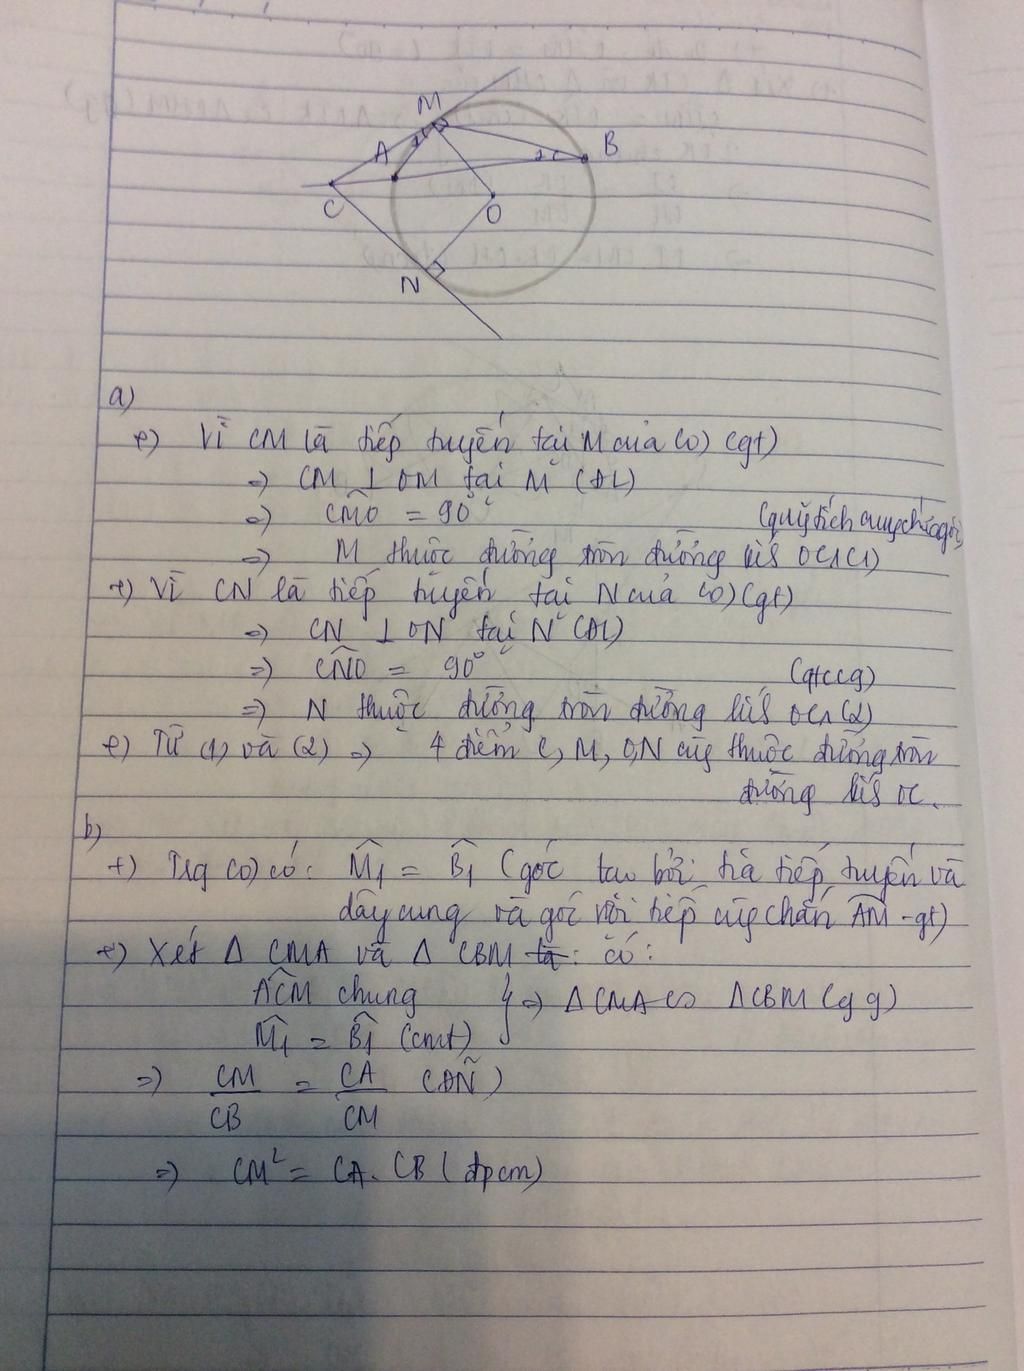 M
A
B
C
O
N
a)
+) Vì CM là tiếp tuyến tại M của (O) (gt)
=> CM ⊥ OM tại M (ĐL)
=> CMO = 90°
(quỹ tích cung chứa góc)
=> M thuộc đường tròn đường kính OC (1)
+) Vì CN là tiếp tuyến tại N của (O) (gt)
=> CN ⊥ ON tại N (ĐL)
=> CNO = 90°
(qtccg)
=> N thuộc đường tròn đường kính OC (2)
+) Từ (1) và (2) => 4 điểm C, M, O, N cùng thuộc đường tròn
đường kính OC.
b)
+) Trg (O) có: M̂1 = B̂1 (góc tạo bởi tia tiếp tuyến và
dây cung và góc nội tiếp cùng chắn AM - gt)
+) Xét Δ CMA và Δ CBM có:
ACM chung } => Δ CMA ∽ Δ CBM (g g)
M̂1 = B̂1 (cmt)
=> CM/CB = CA/CM (ĐN)
=> CM² = CA. CB (đpcm)